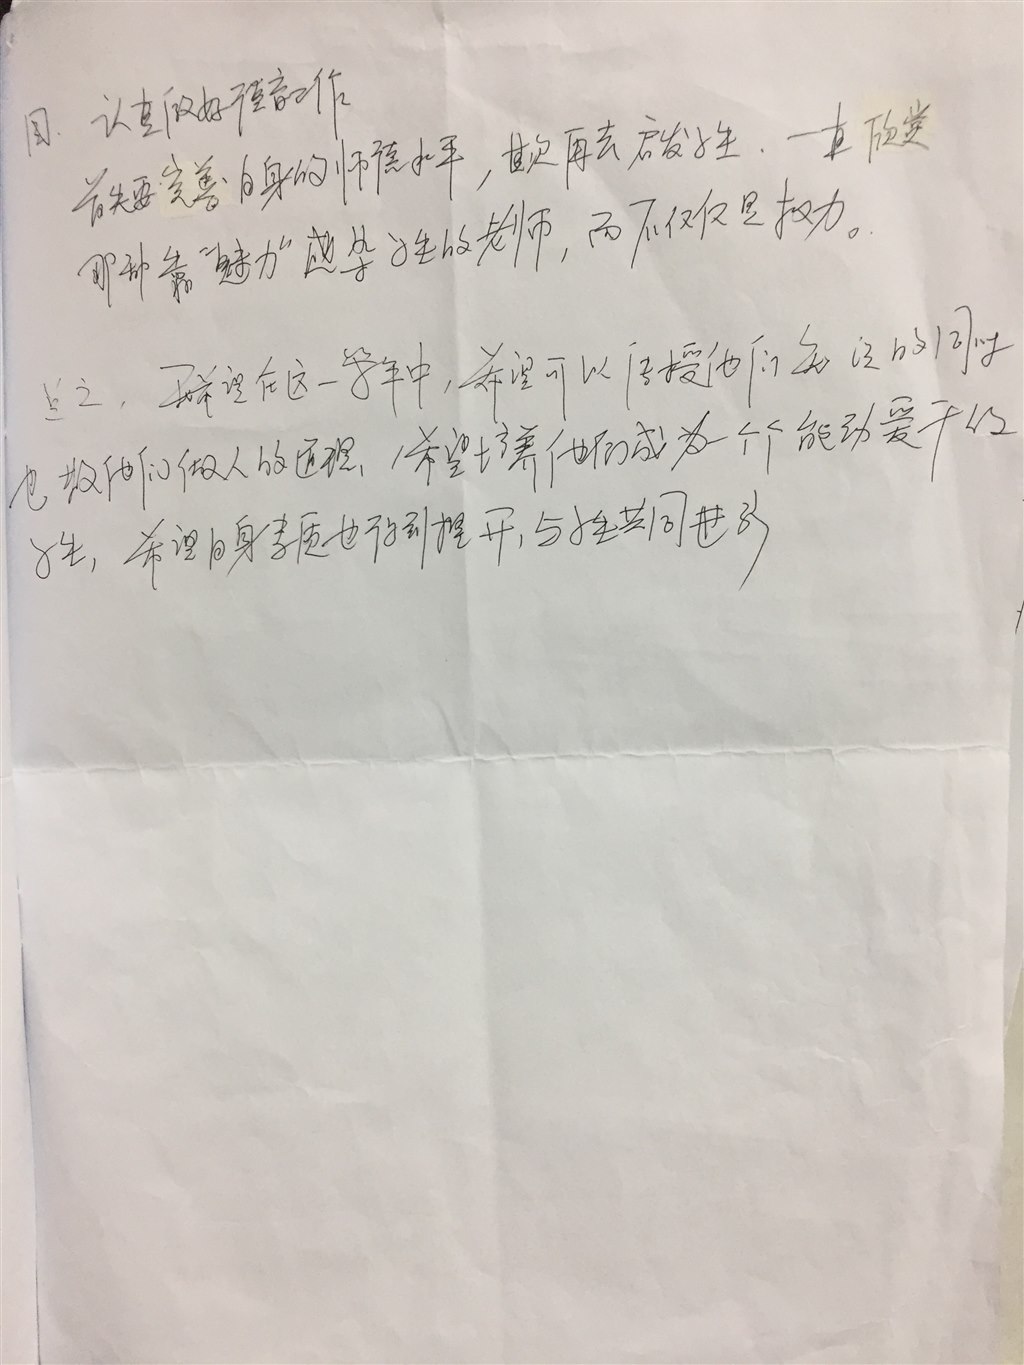 四. 认真做好德育工作
首先要完善自身的师德水平，其次再去启发学生. 一直欣赏
那种靠“魅力”感染学生的老师，而不仅仅是权力。
总之, 我希望在这一学年中, 希望可以传授他们知识的同时
也教他们做人的道理, 希望培养他们成为一个个能动爱干的
学生, 希望自身素质也得到提升, 与学生共同进步